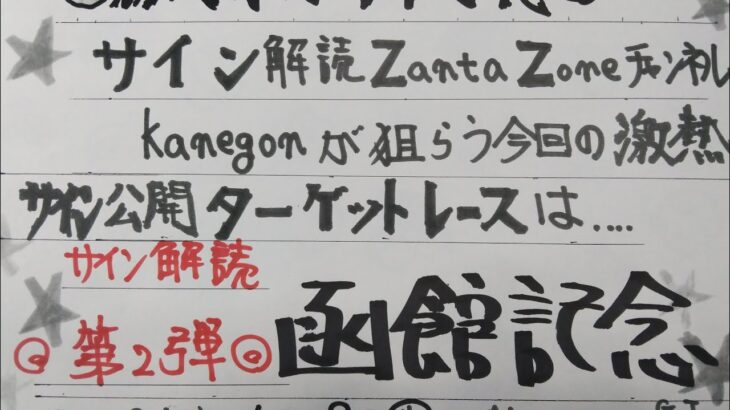 サイン解読ZantaZoneチャンネル
kanegonが狙らう今回の激熱
サイン公開ターゲットレースは....
サイン解読
◎第2弾◎
函館記念